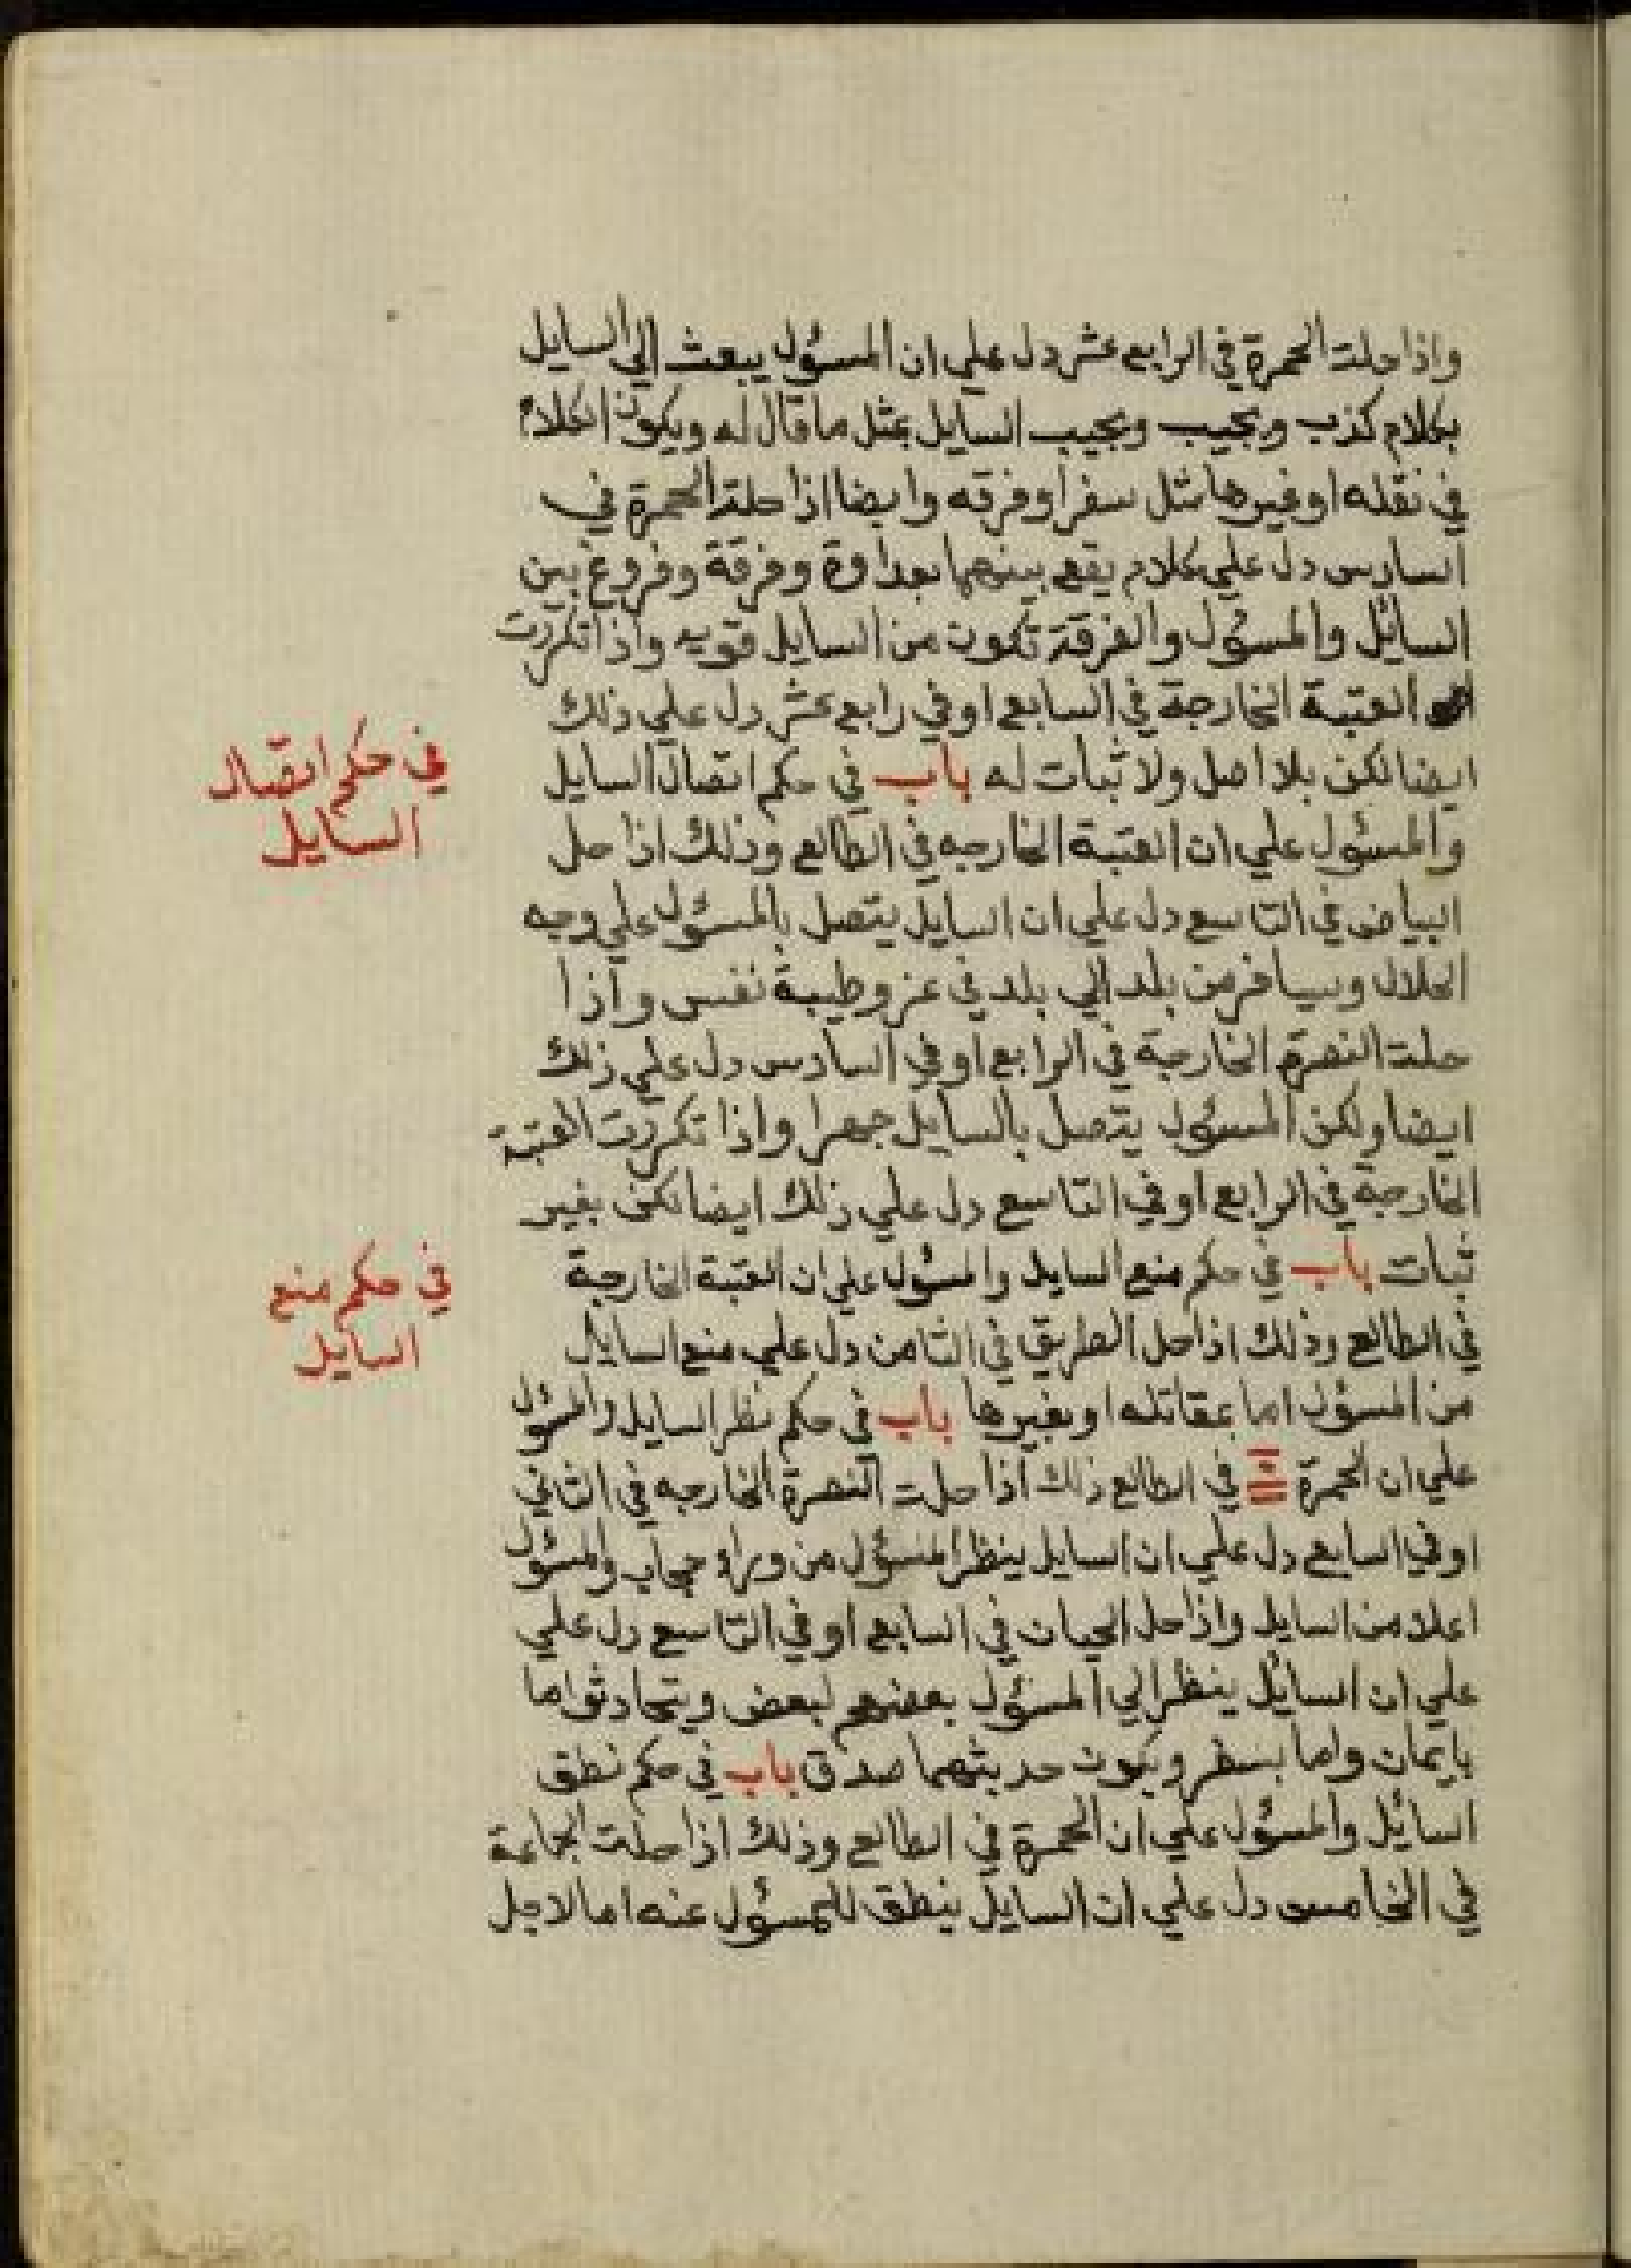 واذا حلت الحمرة في الرابع عشر دل علي ان المسؤل يبعث الي السايل
بكلام كذب ويجيب ويجيب السايل بمثل ما قال له ويكون الكلام
في نقله او غيرها مثل سفر او فرقه وايضا اذا حلت الحمرة في
السادس دل علي كلام يقع بينهما بعداوة وفرقة وفروع بين
السائل والمسؤل والفرقة تكون من السايل قويه واذا تكررت
العتبة الخارجة في السابع او في رابع عشر دل علي ذلك
ايضا لكن بلا اصل ولا ثبات له باب في حكم اتصال السايل
في حكم اتصال
السايل
والمسئول علي ان العتبة الخارجه في الطالع وذلك اذا حل
البياض في التاسع دل علي ان السايل يتصل بالمسئول علي وجه
الحلال ويسافر من بلد الي بلد في عز وطيبة نفس واذا
حلت النصرة الخارجة في الرابع او في السادس دل علي ذلك
ايضا ولكن المسؤل يتصل بالسايل جهرا واذا تكررت العتبة
الخارجه في الرابع او في التاسع دل علي ذلك ايضا لكن بغير
ثبات باب في حكم منع السايل والمسؤل علي ان العتبة الخارجة
في حكم منع
السايل
في الطالع وذلك اذا حل الطريق في الثامن دل علي منع السايل
من المسؤل اما بمقاتله او بغيرها باب في حكم نظر السايل والمسؤل
علي ان الحمرة في الطالع ذلك اذا حلت النصرة الخارجه في الثاني
او في السابع دل علي ان السايل ينظر المسؤل من وراء حجاب والمسؤل
اعلا من السايل واذا حل الحيان في السابع او في التاسع دل علي
علي ان السائل ينظر الي المسؤل بعضهم لبعض ويتحادثوا اما
بايمان واما بسطر ويكون حديثهما صدق باب في حكم نطق
السائل والمسؤل علي ان الحمرة في الطالع وذلك اذا حلت الجماعة
في الخامس دل علي ان السايل ينطق للمسؤل عنه اما لاجل